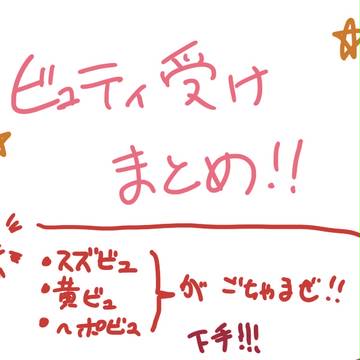 ビュティ受け
まとめ!!
・スズビュ
・黄ビュ
・ヘポビュ
がごちゃまぜ!!
下手!!!